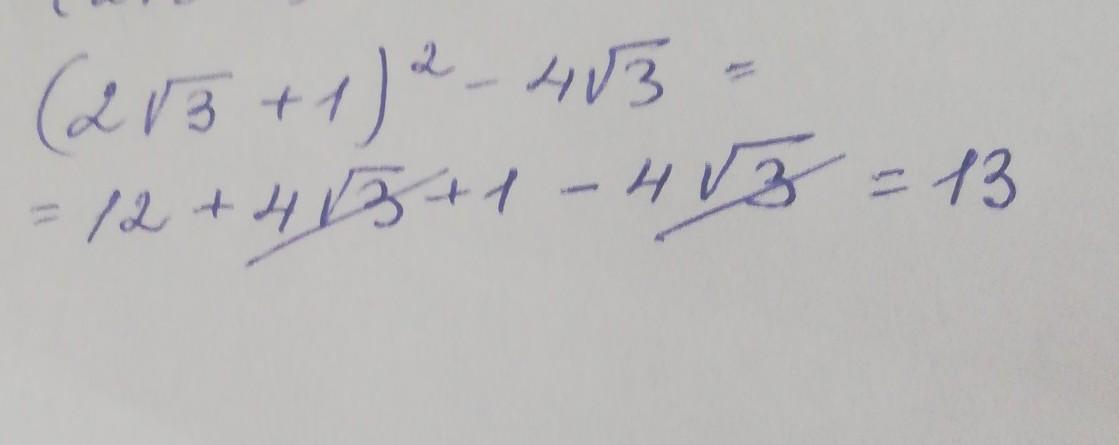 (2√3 + 1)² - 4√3 =
= 12 + 4√3 + 1 - 4√3 = 13